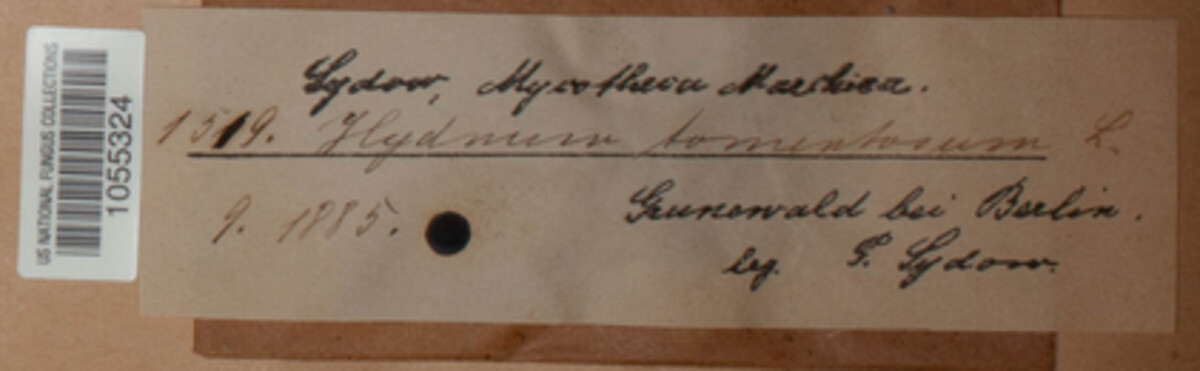 US NATIONAL FUNGUS COLLECTIONS
1055324
Sydow, Mycotheca Marchica.
1519. Hydnum tomentosum L.
9. 1885.
Grunewald bei Berlin.
leg. P. Sydow.